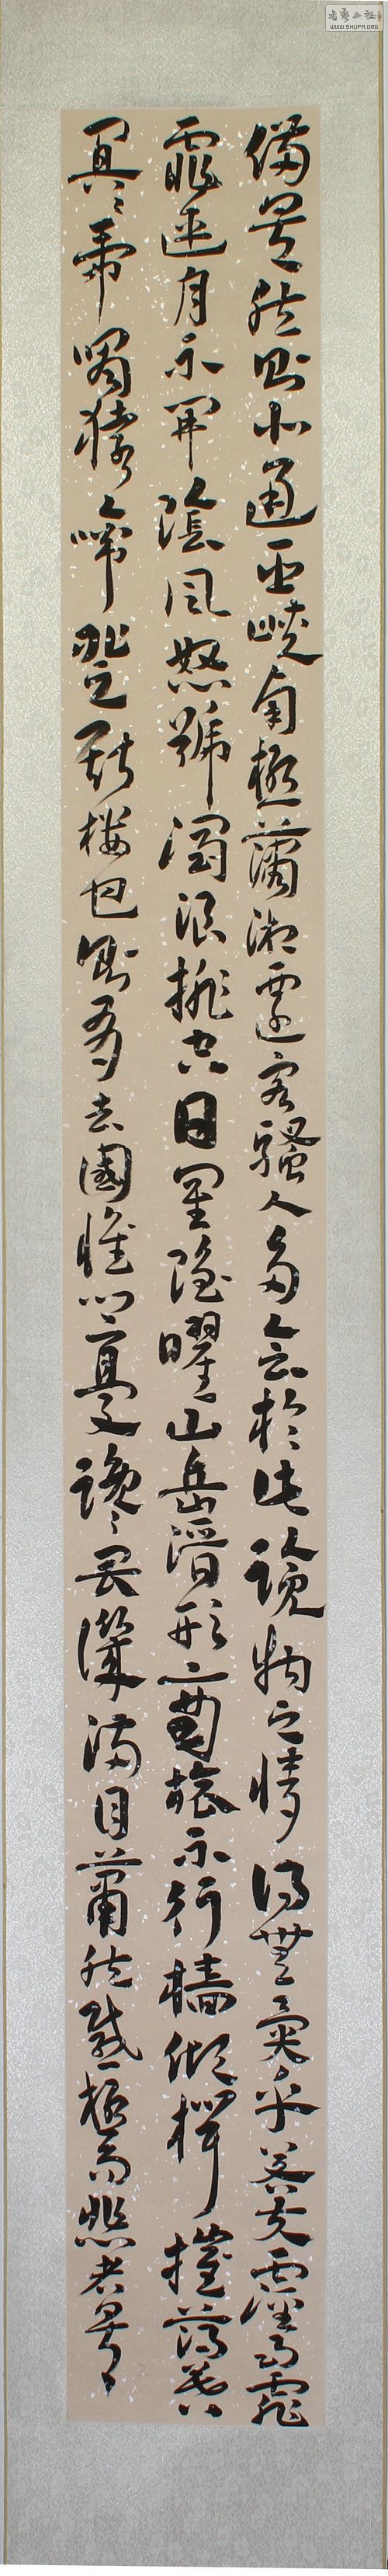 書藝公社
WWW.SHUFA.ORG
備矣然則北通巫峽南極瀟湘遷客騷人多會於此覽物之情得無異乎若夫霪雨霏
霏連月不開陰風怒號濁浪排空日星隱曜山岳潛形商旅不行檣傾楫摧薄暮
冥〻虎嘯猿啼登斯樓也則有去國懷鄉憂讒畏譏滿目蕭然感極而悲者矣